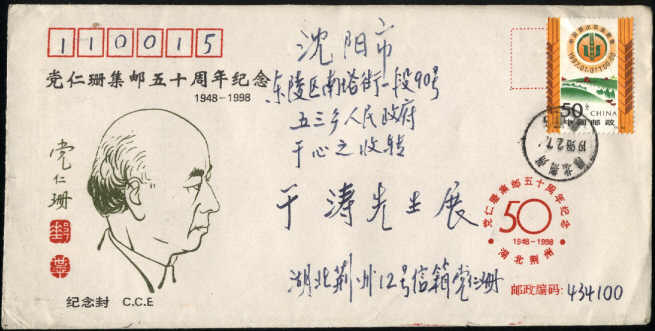 110015
党仁珊集邮五十周年纪念
1948-1998
沈阳市
东陵区南塔街一段90号
五三乡人民政府
于心之收转
于涛先生展
湖北荆州12号信箱党仁珊
邮政编码：434100
党仁珊
纪念封 C.C.E
50分 CHINA
中国邮政
党仁珊集邮五十周年纪念
50
1948-1998
湖北荆州